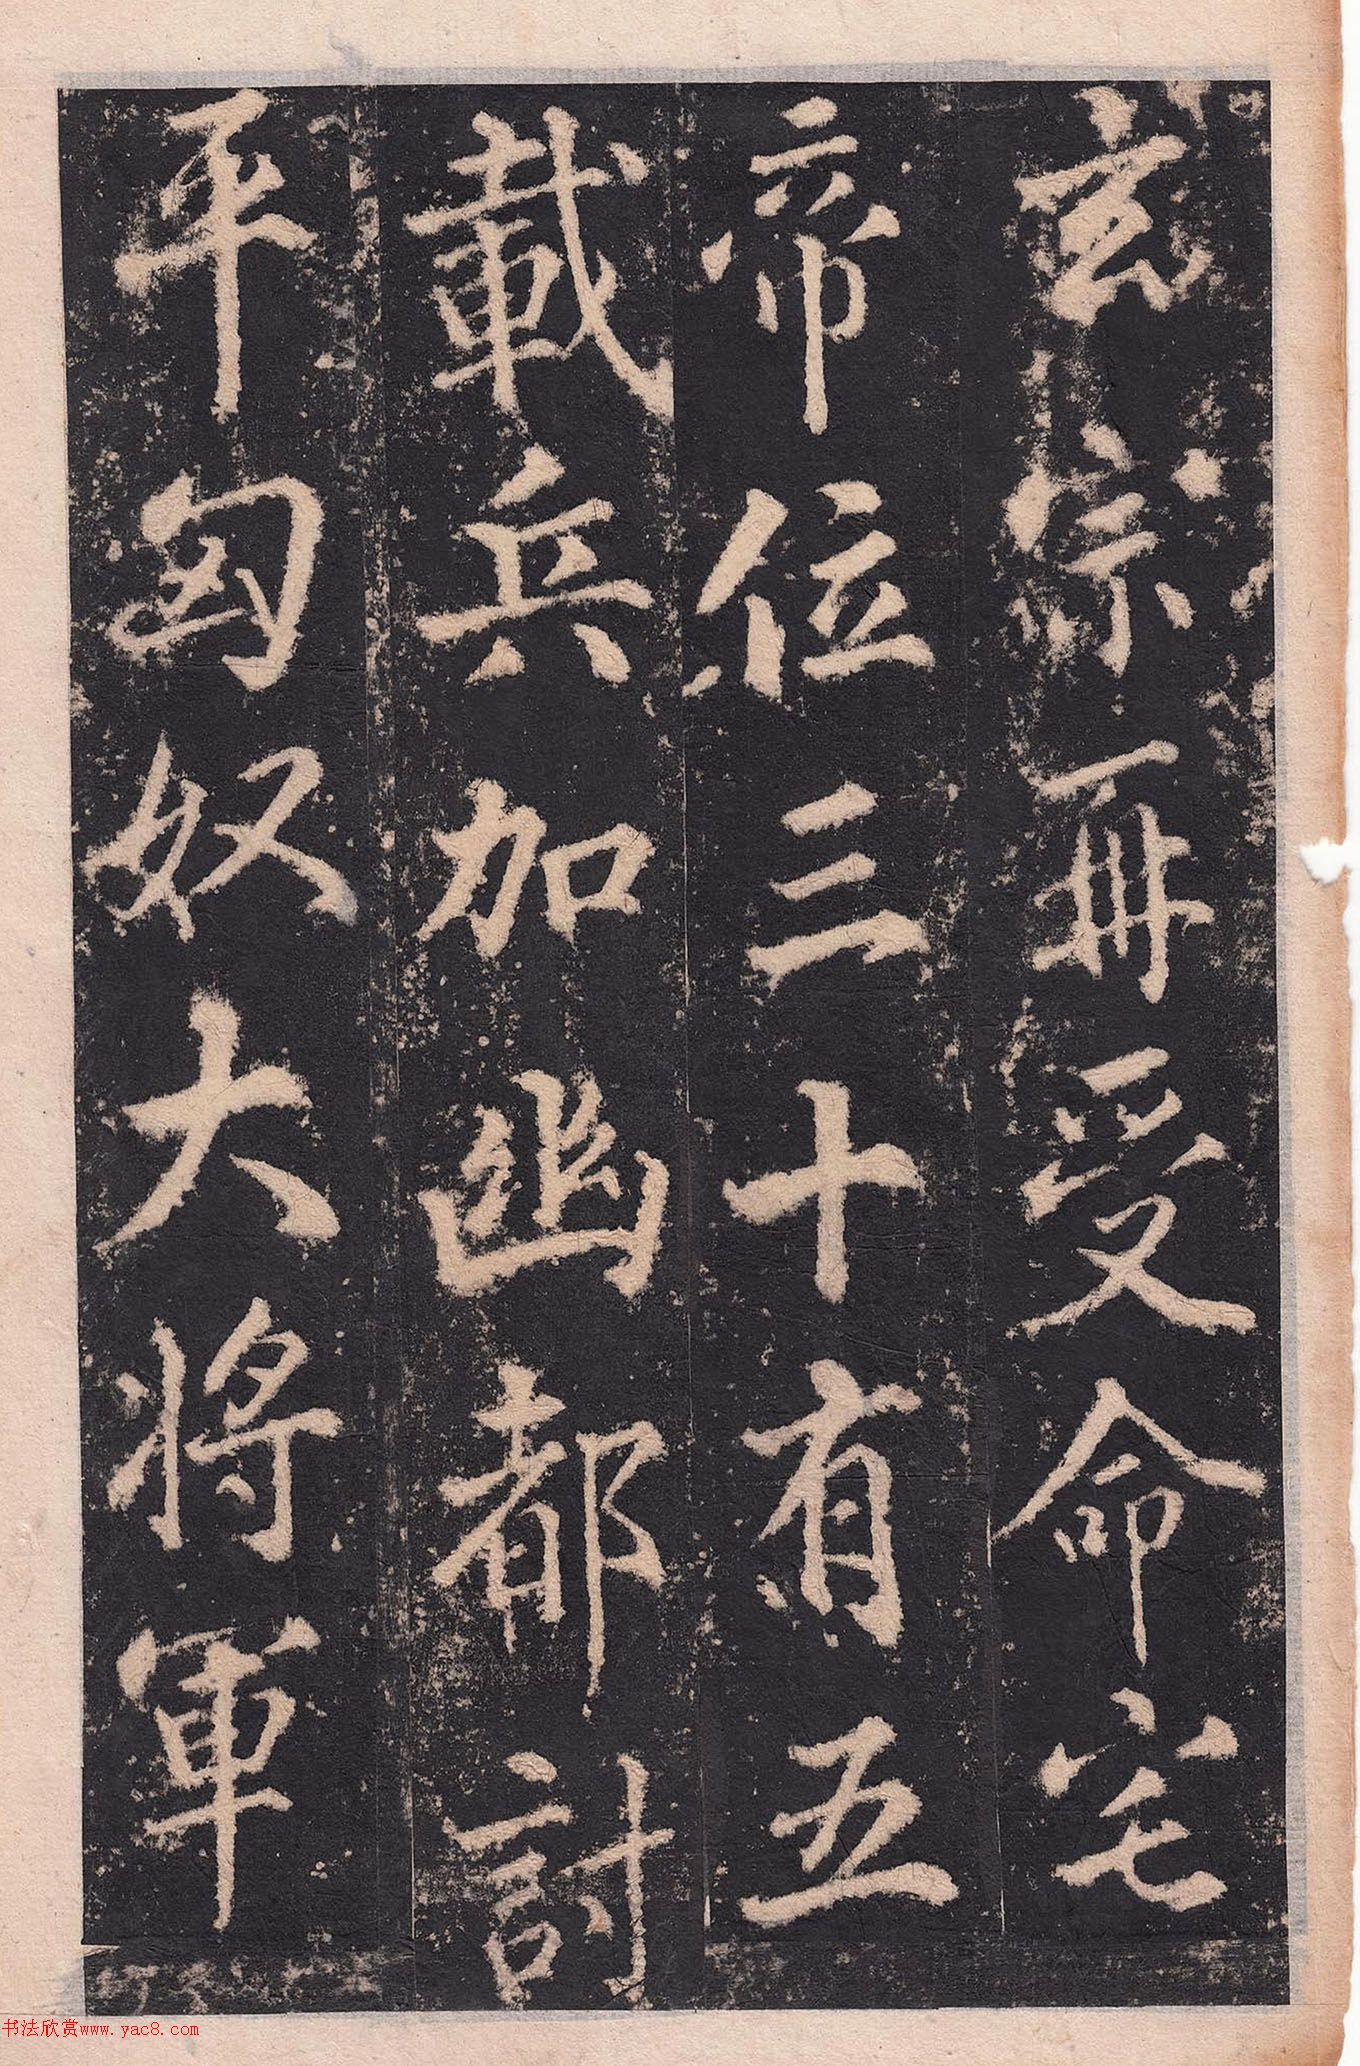 玄宗再受命宅
帝位三十有五
載兵加幽都討
平匈奴大將軍
书法欣赏www.yac8.com